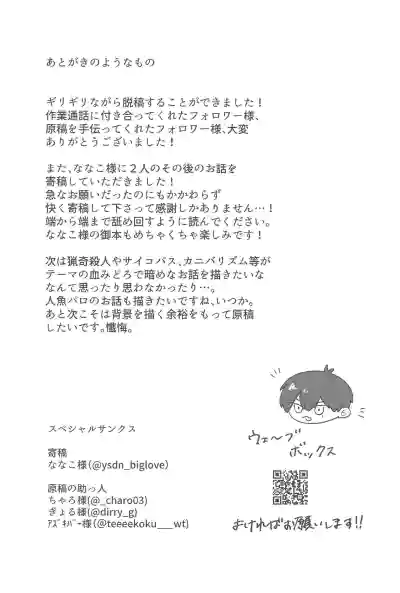 あとがきのようなもの
ギリギリながら脱稿することができました！
作業通話に付き合ってくれたフォロワー様、
原稿を手伝ってくれたフォロワー様、大変
ありがとうございました！
また、ななこ様に２人のその後のお話を
寄稿していただきました！
急なお願いだったのにもかかわらず
快く寄稿して下さって感謝しかありません…！
端から端まで舐め回すように読んでください。
ななこ様の御本もめちゃくちゃ楽しみです！
次は猟奇殺人やサイコパス、カニバリズム等が
テーマの血みどろで暗めなお話を描きたいな
なんて思ったり思わなかったり…。
人魚パロのお話も描きたいですね、いつか。
あと次こそは背景を描く余裕をもって原稿
したいです。懺悔。
スペシャルサンクス
寄稿
ななこ様（@ysdn_biglove）
原稿の助っ人
ちゃろ様(@_charo03)
ぎょる様(@dirry_g)
ｱｽﾞｷﾊﾞｰ様（@teeeekoku___wt)
ウェーブ
ボックス
よければお願いします!!